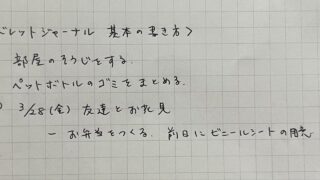 バレットジャーナル 基本の書き方〉
部屋のそうじをする.
ペットボトルのゴミをまとめる.
3/28(金) 友達とお花見
− お弁当をつくる. 前日にビニールシートの用意